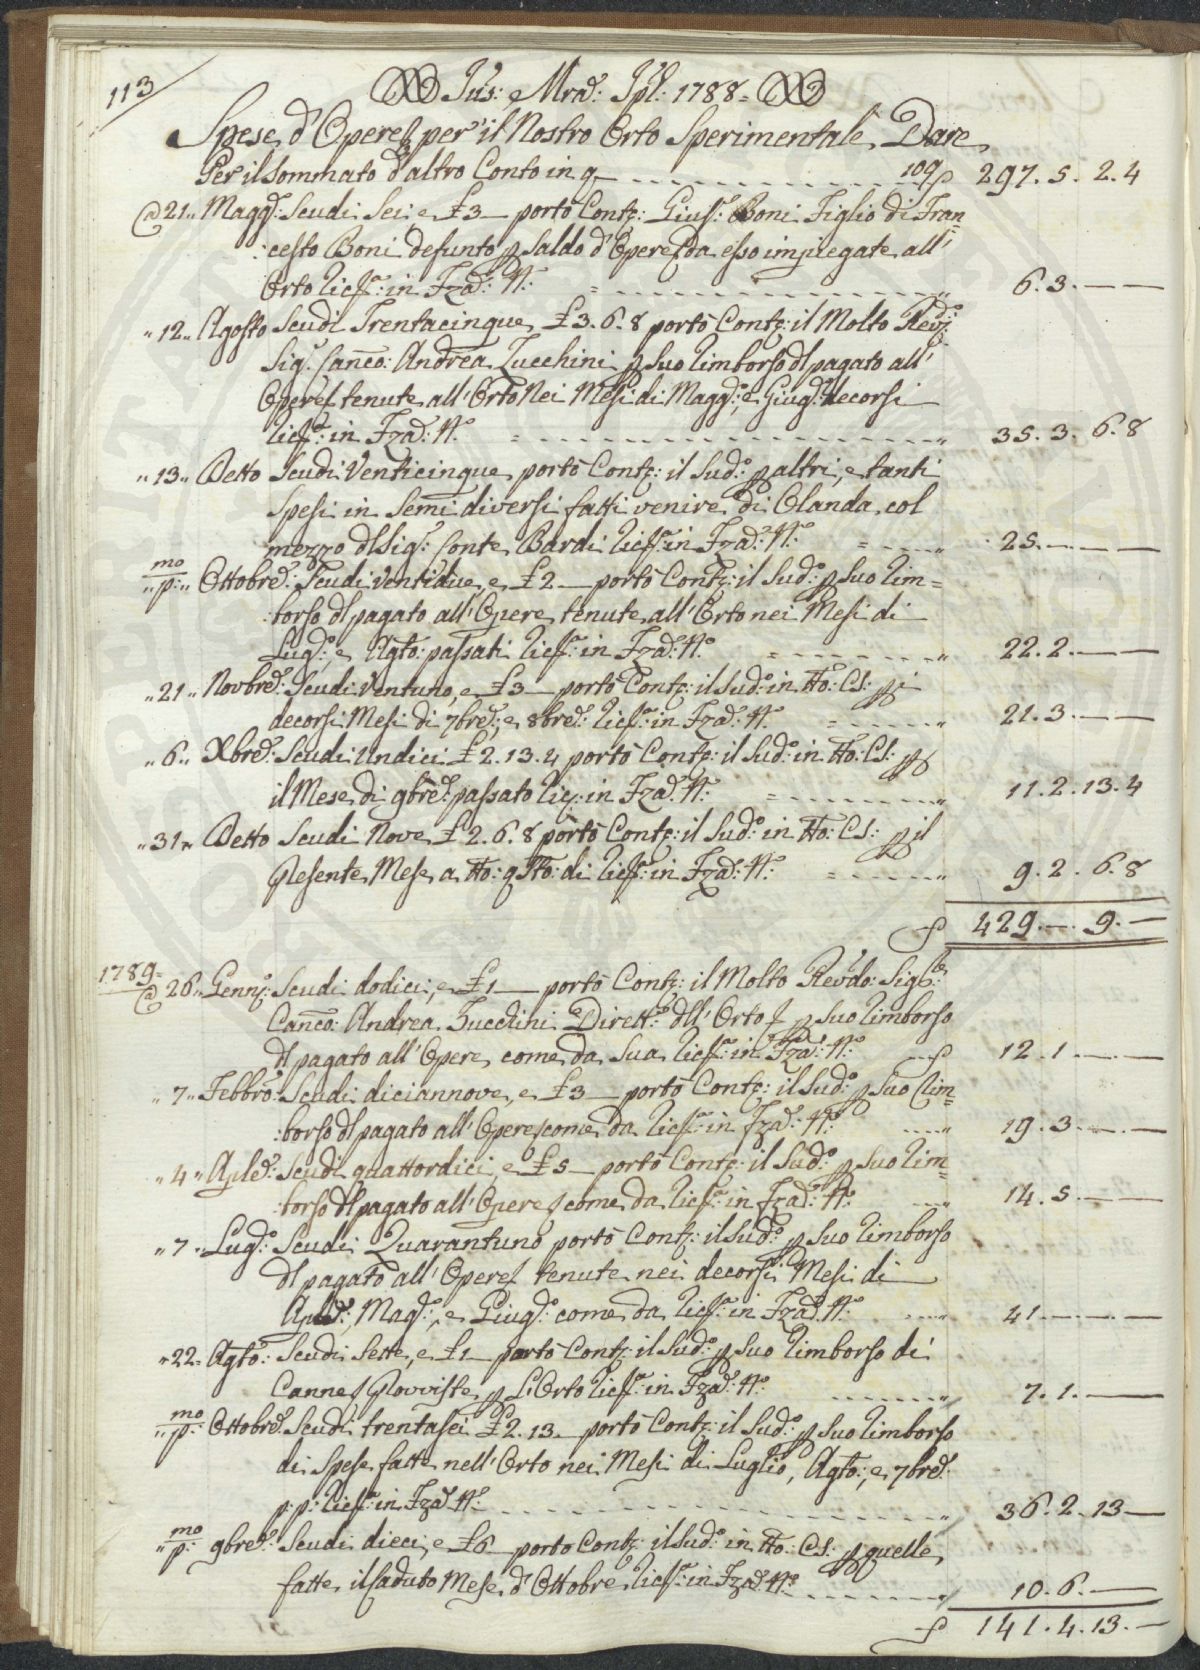 113
Jus: e Mrã: Jpl: 1788=
Spese, d'Opere per il Nostro Orto Sperimentale, Dare
Per il Sommato d'altro Conto in q — 109 297. 5. 2. 4
@ 21.. Magg: Scudi Sei e £3 — portò Contj: Gius: Boni Figlio di Fran=
:cesco Boni defunto p Saldo d'Opere da esso impiegate, all'
Orto Ricf: in Fza: N.o 6. 3. — —
" 12.. Agosto Scudi Trentacinque, £3. 6. 8 portò Contj: il Molto Revd:
Sig. Canco: Andrea Zucchini p suo Rimborso dl pagato all'
Opere tenute, all'Orto Nei Mesi di Magg:, e Giug: decorsi
Ricf: in Fza: N.o 35. 3. 6. 8
" 13.. Detto Scudi Venticinque, portò Contj: il Sud: p altri, e tanti
Spesi in Semi diversi fatti venire, di Olanda, col
mezzo dl Sig: Conte, Bardi Ricf: in Fza: N.o 25. — — —
" p:mo Ottobre: Scudi Ventidue, e £2 — portò Contj: il Sud: p suo Rim=
:borso dl pagato all'Opere, tenute, all'Orto nei Mesi di
Lug:, e Agto: passati Ricf: in Fza: N.o 22. 2. — —
" 21.. Novbre: Scudi Ventuno, e £3 — portò Contj: il Sud: in tto: Cs: p i
decorsi Mesi di 7bre:, e 8bre: Ricf: in Fza: N.o 21. 3. — —
" 6.. Xbre: Scudi Undici £2. 13. 4 portò Contj: il Sud: in tto: Cs: p
il Mese, di 9bre: passato Ricf: in Fza: N.o 11. 2. 13. 4
" 31.. Detto Scudi Nove, £2. 6. 8 portò Contj: il Sud: in tto: Cs: p il
Presente, Mese, a tto: di Ricf: in Fza: N.o 9. 2. 6. 8
429. — 9. —
1789=
@ 26.. Genn: Scudi dodici, e £1 — portò Contj: il Molto Revdo: Sig:
Canco: Andrea Zucchini Dirett: dll'Orto p suo Rimborso
dl pagato all'Opere, come, da, Sua, Ricf: in Fza: N.o 12. 1 — —
" 7.. Febbro: Scudi diciannove, e £3 — portò Contj: il Sud: p suo Rim=
:borso dl pagato all'Opere, come, da Ricf: in Fza: N.o 19. 3. — —
" 4.. Aple: Scudi quattordici, e £5 — portò Contj: il Sud: p suo Rim=
:borso dl pagato all'Opere, come, da, Ricf: in Fza: N.o 14. 5. — —
" 7.. Lug: Scudi Quarantuno portò Contj: il Sud: p suo Rimborso
dl pagato all'Opere, tenute, nei decorsi Mesi di
Aple:, Mag:, e Giug: come, da Ricf: in Fza: N.o 41 — — —
" 22.. Agto: Scudi Sette, e £1 — portò Contj: il Sud: p suo Rimborso di
Canne, Provviste, p L'Orto Ricf: in Fza: N.o 7. 1. — —
" p:mo Ottobre: Scudi trentasei £2. 13 — portò Contj: il Sud: p suo Rimborso
di Spese, fatte, nell'Orto nei Mesi di Luglio, Agto:, e 7bre:
p: p: Ricf: in Fza: N.o 36. 2. 13 —
" p:mo 9bre: Scudi dieci, e £6 — portò Contj: il Sud: in tto: Cs: p quelle,
fatte, il caduto Mese, d'Ottobre, Ricf: in Fza: N.o 10. 6. — —
141. 4. 13. —